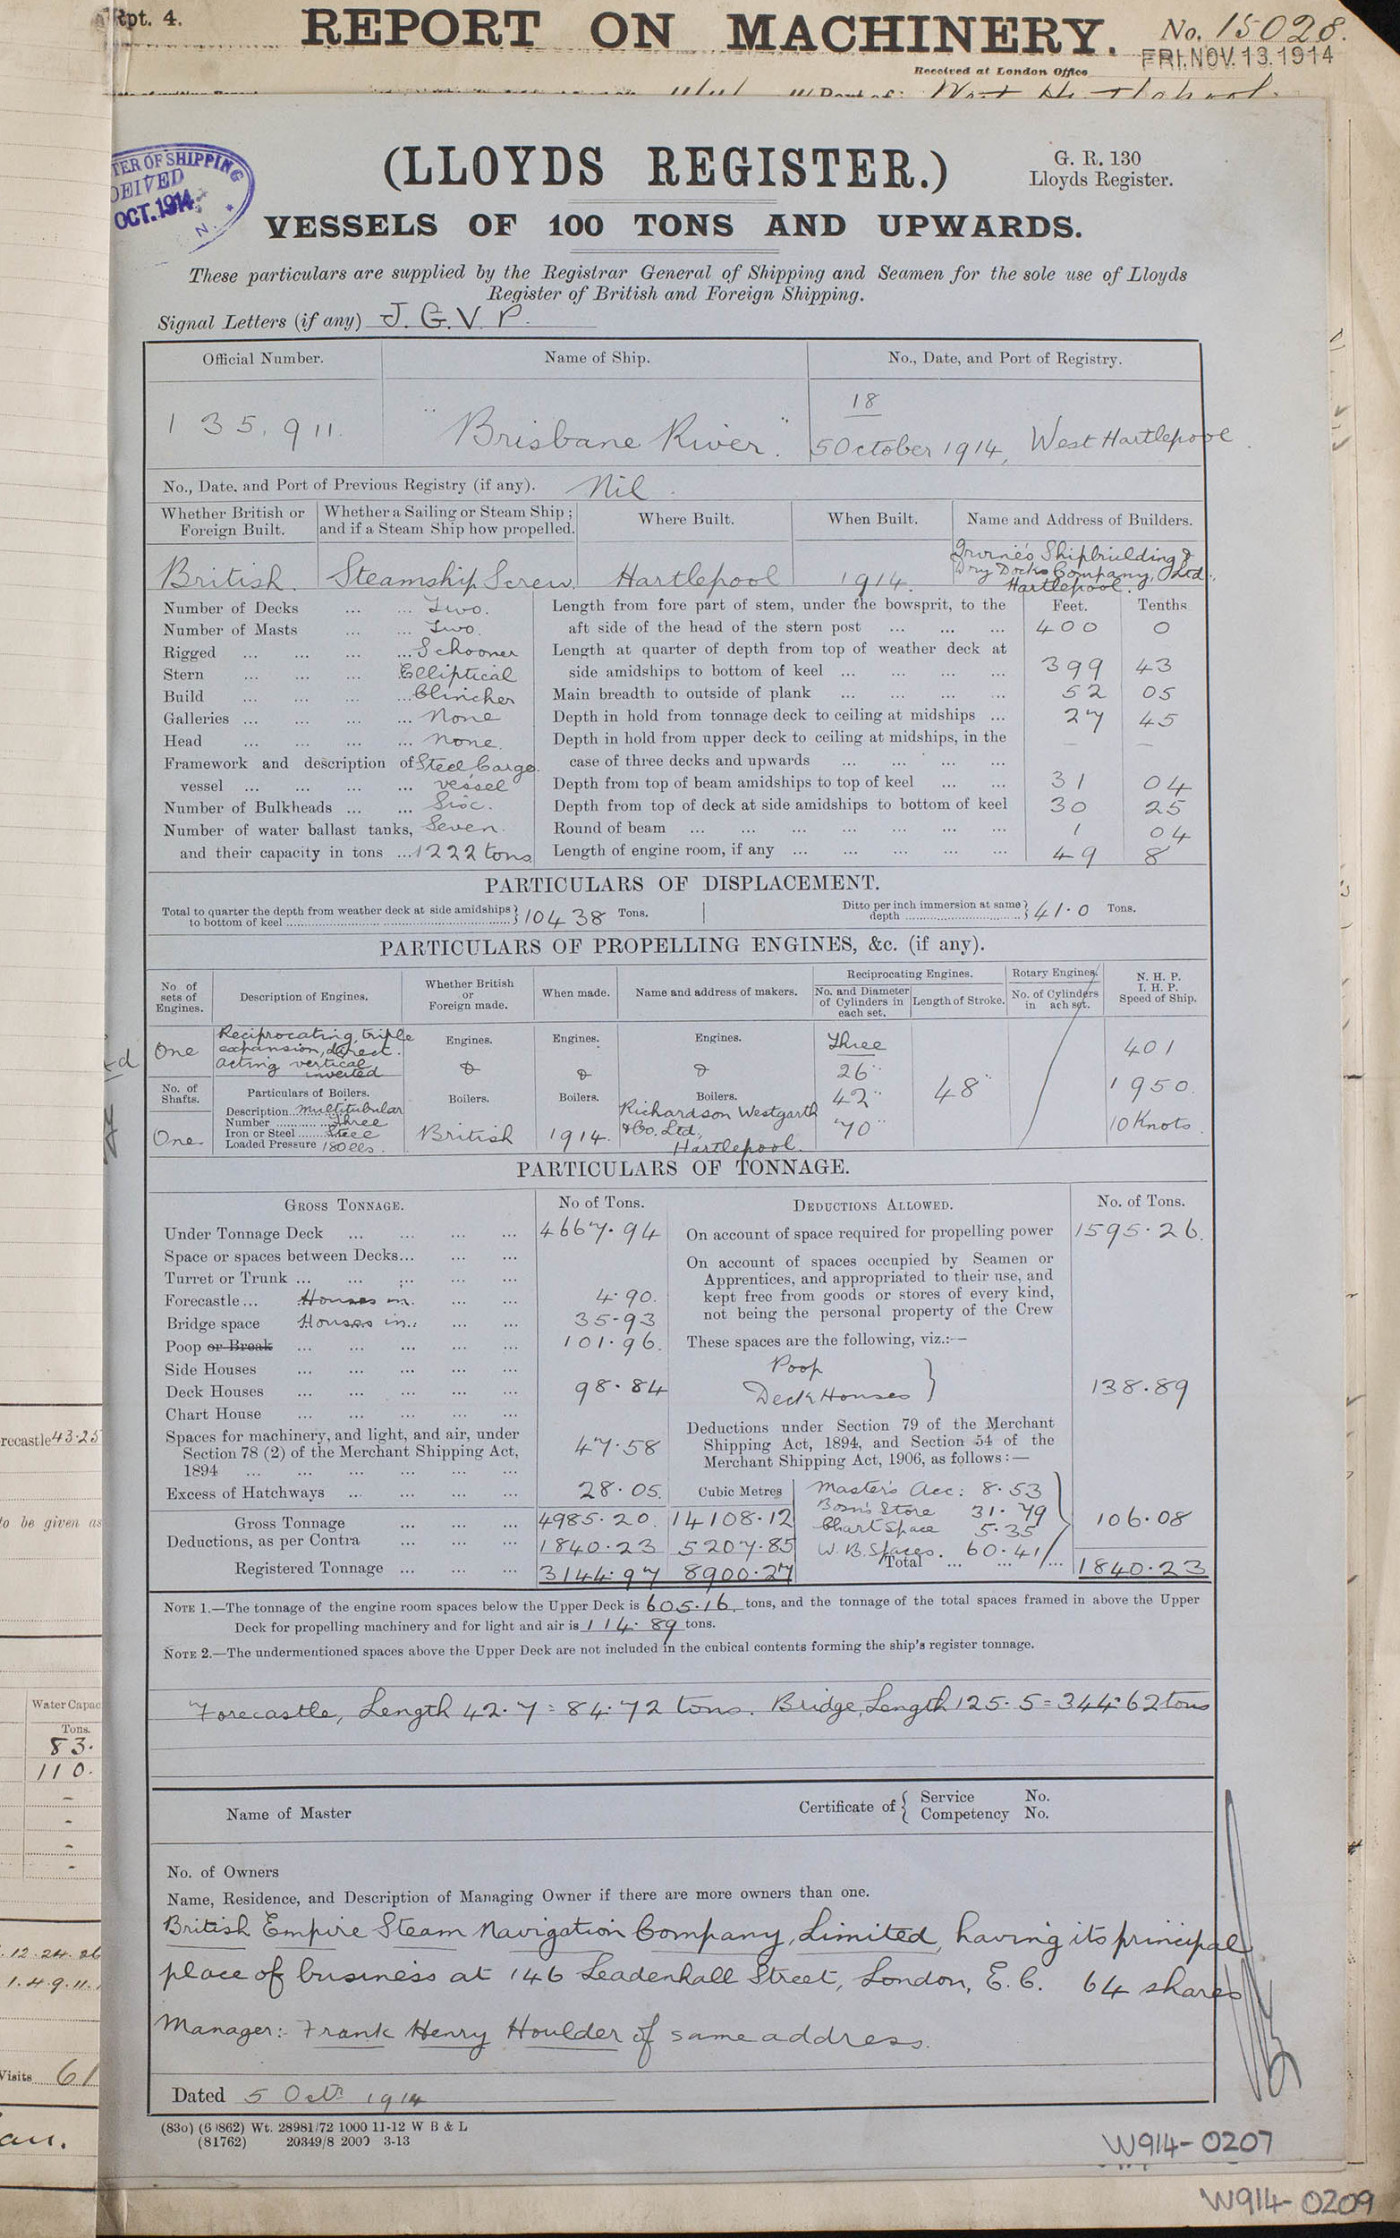 Rpt. 4.
REPORT ON MACHINERY.
No. 15028.
FRI. NOV. 13. 1914
Received at London Office
OCT. 1914
(LLOYDS REGISTER.)
G. R. 130
Lloyds Register.
VESSELS OF 100 TONS AND UPWARDS.
These particulars are supplied by the Registrar General of Shipping and Seamen for the sole use of Lloyds
Register of British and Foreign Shipping.
Signal Letters (if any) J. G. V. P.
Official Number. Name of Ship. No., Date, and Port of Registry.
135,911. "Brisbane River". 18
5 October 1914, West Hartlepool.
No., Date, and Port of Previous Registry (if any). Nil.
Whether British or Foreign Built. Whether a Sailing or Steam Ship; and if a Steam Ship how propelled. Where Built. When Built. Name and Address of Builders.
British. Steamship Screw. Hartlepool 1914. Irvine's Shipbuilding & Dry Docks Company, Ltd., Hartlepool.
Number of Decks ... ... Two.
Number of Masts ... ... Two.
Rigged ... ... ... ... Schooner
Stern ... ... ... Elliptical
Build ... ... ... ... Clincher
Galleries ... ... ... ... None
Head ... ... ... ... None.
Framework and description of Steel Cargo
vessel ... ... ... ... vessel
Number of Bulkheads ... ... Six.
Number of water ballast tanks, Seven.
and their capacity in tons ... 1222 tons
Feet. Tenths
Length from fore part of stem, under the bowsprit, to the
aft side of the head of the stern post ... ... ... 400 0
Length at quarter of depth from top of weather deck at
side amidships to bottom of keel ... ... ... ... 399 43
Main breadth to outside of plank ... ... ... ... 52 05
Depth in hold from tonnage deck to ceiling at midships ... 27 45
Depth in hold from upper deck to ceiling at midships, in the — —
case of three decks and upwards ... ... ... ...
Depth from top of beam amidships to top of keel ... ... 31 04
Depth from top of deck at side amidships to bottom of keel 30 25
Round of beam ... ... ... ... ... ... ... 1 04
Length of engine room, if any ... ... ... ... ... 49 8
PARTICULARS OF DISPLACEMENT.
Total to quarter the depth from weather deck at side amidships to bottom of keel 10438 Tons.
Ditto per inch immersion at same depth 41.0 Tons.
PARTICULARS OF PROPELLING ENGINES, &c. (if any).
No of sets of Engines. Description of Engines. Whether British or Foreign made. When made. Name and address of makers. Reciprocating Engines. No. and Diameter of Cylinders in each set. Length of Stroke. Rotary Engines. No. of Cylinders in each set. N. H. P. I. H. P. Speed of Ship.
One Reciprocating, triple expansion, direct acting vertical inverted Engines. & Engines. & Engines. & Three
26" 42" 70" 48" 401
1950.
10 Knots.
No. of Shafts. Particulars of Boilers. Boilers. Boilers. Boilers.
One Description Multitubular
Number Three
Iron or Steel Steel
Loaded Pressure 180 lbs.
British 1914. Richardson Westgarth & Co. Ltd, Hartlepool.
PARTICULARS OF TONNAGE.
GROSS TONNAGE. No of Tons.
Under Tonnage Deck ... ... ... ... 4667.94
Space or spaces between Decks... ... ...
Turret or Trunk ... ... ... ... ...
Forecastle ... Houses in. ... ... 4.90.
Bridge space Houses in. ... ... 35.93
Poop or Break ... ... ... ... ... 101.96.
Side Houses ... ... ... ... ...
Deck Houses ... ... ... ... ... 98.84
Chart House ... ... ... ... ...
Spaces for machinery, and light, and air, under
Section 78 (2) of the Merchant Shipping Act, 47.58
1894 ... ... ... ... ... ...
Excess of Hatchways ... ... ... ... 28.05.
Cubic Metres
Gross Tonnage ... ... ... 4985.20. 14108.12
Deductions, as per Contra ... ... ... 1840.23 5207.85
Registered Tonnage ... ... ... 3144.97 8900.27
DEDUCTIONS ALLOWED. No. of Tons.
On account of space required for propelling power 1595.26.
On account of spaces occupied by Seamen or
Apprentices, and appropriated to their use, and
kept free from goods or stores of every kind,
not being the personal property of the Crew
These spaces are the following, viz.:—
Poop
Deck Houses } 138.89
Deductions under Section 79 of the Merchant
Shipping Act, 1894, and Section 54 of the
Merchant Shipping Act, 1906, as follows:—
Master's Acc: 8.53
Bosn's Store 31.79
Chart Space 5.35 106.08
W. B. Spaces. 60.41
Total ... ... ... 1840.23
NOTE 1.—The tonnage of the engine room spaces below the Upper Deck is 605.16 tons, and the tonnage of the total spaces framed in above the Upper
Deck for propelling machinery and for light and air is 114.89 tons.
NOTE 2.—The undermentioned spaces above the Upper Deck are not included in the cubical contents forming the ship's register tonnage.
Forecastle, Length 42.7 = 84.72 tons. Bridge, Length 125.5 = 344.62 tons
Name of Master Certificate of { Service No.
Competency No.
No. of Owners
Name, Residence, and Description of Managing Owner if there are more owners than one.
British Empire Steam Navigation Company, Limited, having its principal
place of business at 146 Leadenhall Street, London, E.C. 64 shares
Manager:- Frank Henry Houlder of same address.
Dated 5 Octr 1914
(83o) (6 862) Wt. 28981/72 1000 11-12 W B & L
(81762) 20349/8 2000 3-13
W914-0207
W914-0209
recastle 43.25
to be given as
Water Capac
Tons.
83.
110.
Visits 61